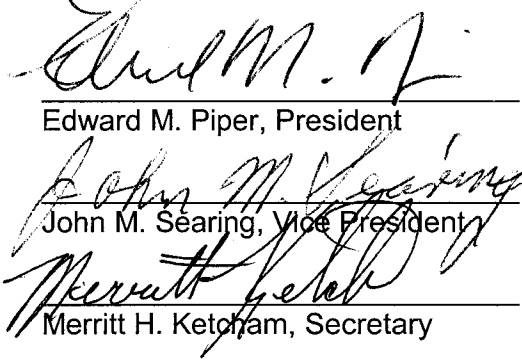 Edward M. Piper, President
John M. Searing
John M. Searing, Vice President
Merritt Ketch
Merritt H. Ketcham, Secretary